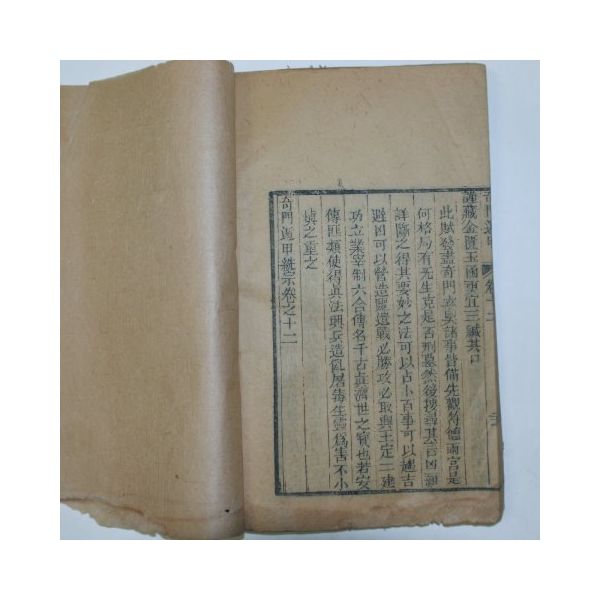 謹藏金匱玉國更宜三緘其口
此賦發盡奇門玄奧諸事皆備先觀符德兩宮是
何格局有无生克是否刑墓然後搜尋其吉凶
詳斷之得其要妙之法可以占卜百事可以趨吉
避凶可以營造靈遺戰必勝攻必取興王定二建
功立業宰制六合傳名千古眞濟世之寶也若妄
傳匪類使得眞法興兵造亂屠毒生靈爲害不小
愼之重之
奇門遁甲統宗卷之十二